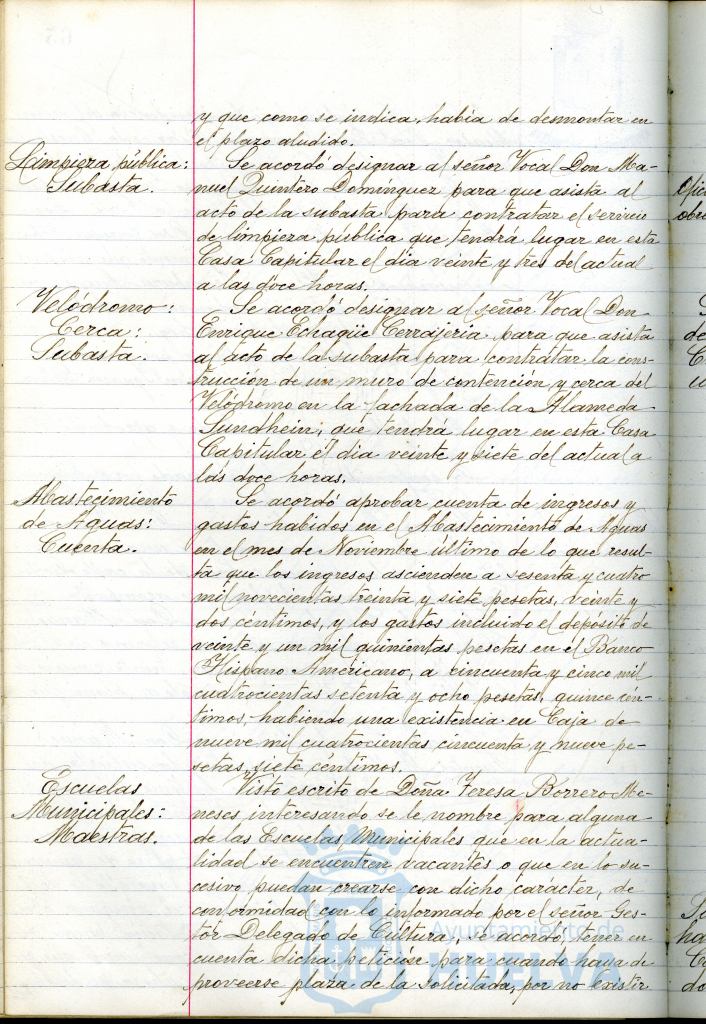 y que como se indica, había de desmontar en
el plazo aludido.
Limpieza pública:
Subasta.
Se acordó designar al señor Vocal Don Ma-
nuel Quintero Dominguez para que asista al
acto de la subasta para contratar el servicio
de limpieza pública que tendrá lugar en esta
Casa Capitular el dia veinte y tres del actual
a las doce horas.
Velódromo:
Cerca:
Subasta.
Se acordó designar al señor Vocal Don
Enrique Echagüe Cerrajería para que asista
al acto de la subasta para contratar la cons-
trucción de un muro de contención y cerca del
Velódromo en la fachada de la Alameda
Sundhein; que tendrá lugar en esta Casa
Capitular el dia veinte y siete del actual a
las doce horas.
Abastecimiento
de Aguas:
Cuenta.
Se acordó aprobar cuenta de ingresos y
gastos habidos en el Abastecimiento de Aguas
en el mes de Noviembre último de lo que resul-
ta que los ingresos ascienden a sesenta y cuatro
mil novecientas treinta y siete pesetas, veinte y
dos céntimos, y los gastos incluido el depósito de
veinte y un mil quinientas pesetas en el Banco
Hispano Americano, a cincuenta y cinco mil
cuatrocientas setenta y ocho pesetas, quince cén-
timos, habiendo una existencia en Caja de
nueve mil cuatrocientas cincuenta y nueve pe-
setas, siete céntimos.
Escuelas
Municipales:
Maestras.
Visto escrito de Doña Teresa Borrero Me-
neses, interesando se le nombre para alguna
de las Escuelas Municipales que en la actua-
lidad se encuentren vacantes o que en lo su-
cesivo puedan crearse con dicho carácter, de
conformidad con lo informado por el señor Ges-
tor Delegado de Cultura, se acordó, tener en
cuenta dicha petición para cuando haya de
proveerse plaza de la solicitada, por no existir
Ayuntamiento de
HUELVA